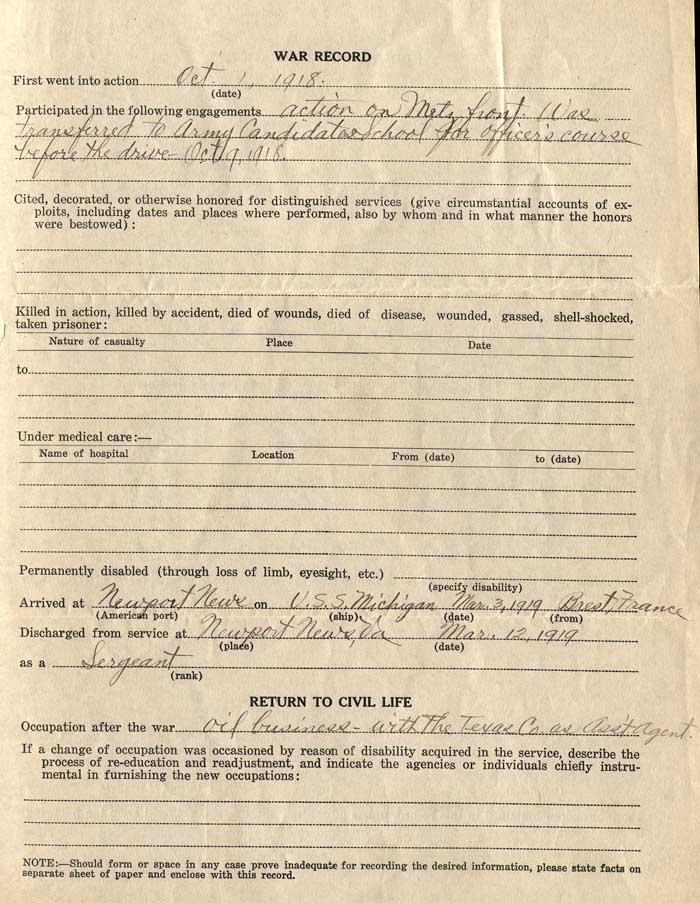 WAR RECORD
First went into action Oct. 1, 1918.
(date)
Participated in the following engagements action on Metz front. Was
transferred to Army Candidates School for officer's course
before the drive - Oct. 9, 1918.
Cited, decorated, or otherwise honored for distinguished services (give circumstantial accounts of ex-
ploits, including dates and places where performed, also by whom and in what manner the honors
were bestowed) :
Killed in action, killed by accident, died of wounds, died of disease, wounded, gassed, shell-shocked,
taken prisoner:
Nature of casualty Place Date
to
Under medical care:—
Name of hospital Location From (date) to (date)
Permanently disabled (through loss of limb, eyesight, etc.)
(specify disability)
Arrived at Newport News on U.S.S. Michigan Mar. 3, 1919 Brest, France
(American port) (ship) (date) (from)
Discharged from service at Newport News, Va Mar. 12, 1919
(place) (date)
as a Sergeant
(rank)
RETURN TO CIVIL LIFE
Occupation after the war oil business - with The Texas Co. as Ass't Agent.
If a change of occupation was occasioned by reason of disability acquired in the service, describe the
process of re-education and readjustment, and indicate the agencies or individuals chiefly instru-
mental in furnishing the new occupations:
NOTE:—Should form or space in any case prove inadequate for recording the desired information, please state facts on
separate sheet of paper and enclose with this record.